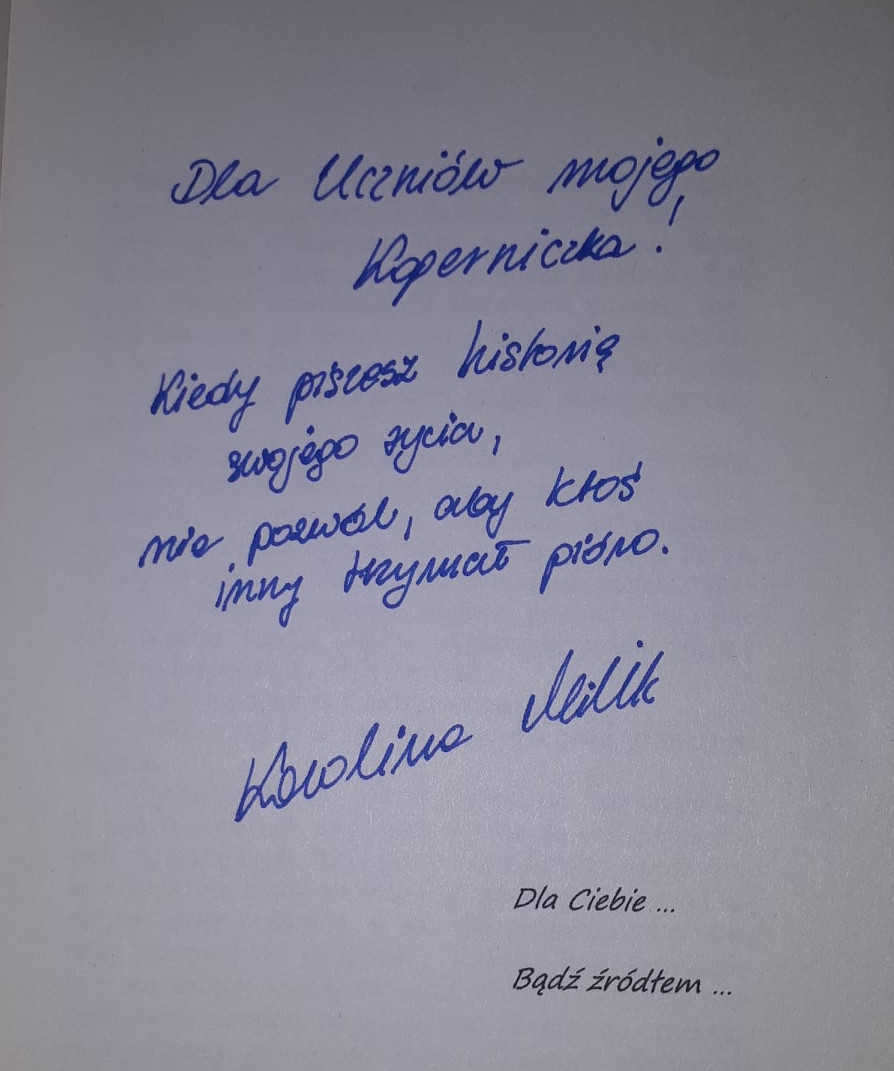 Dla Uczniów mojego
Koperniczka!
Kiedy piszesz historię
swojego życia,
nie pozwól, aby ktoś
inny trzymał pióro.
Karolina Milik
Dla Ciebie ...
Bądź źródłem ...